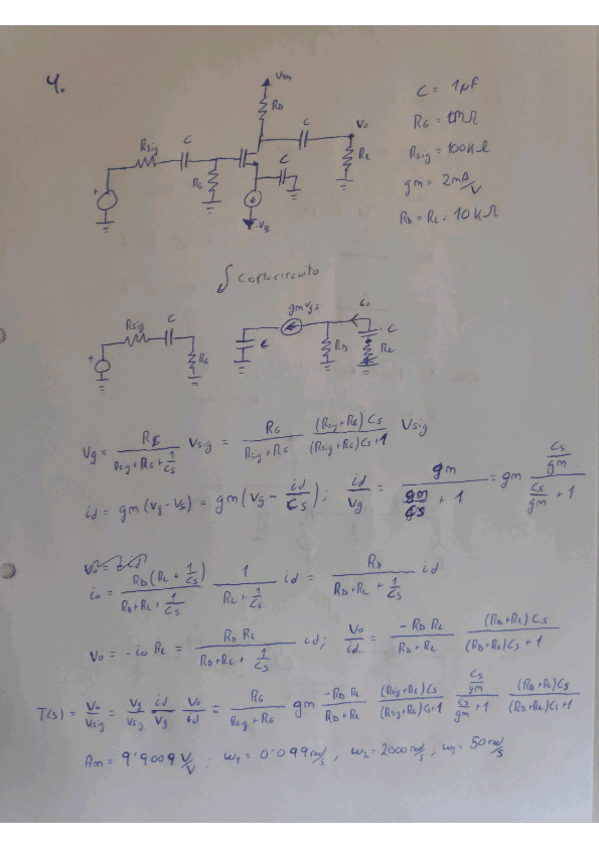 4.
V_DD
R_D
C
V_o
R_sig
C
R_G
C
R_L
-V_S
C = 1μF
R_G = 1MΩ
R_sig = 100KΩ
gm = 2mA/V
R_D = R_L = 10KΩ
∫ Cortocircuito
R_sig
C
R_G
C
gm Vgs
R_D
i_o
C
R_L
V_g = R_G / (R_sig + R_G + 1/CS) V_sig = R_G / (R_sig + R_G) (R_sig + R_G) CS / ((R_sig + R_G) CS + 1) V_sig
id = gm (V_g - V_s) = gm (V_g - id/CS) ; id/V_g = gm / (gm/CS + 1) = gm (CS/gm) / (CS/gm + 1)
i_o = R_D (R_L + 1/CS) / (R_D + R_L + 1/CS) 1 / (R_L + 1/CS) id = R_D / (R_D + R_L + 1/CS) id
V_o = -i_o R_L = R_D R_L / (R_D + R_L + 1/CS) id ; V_o/id = -R_D R_L / (R_D + R_L) (R_D + R_L) CS / ((R_D + R_L) CS + 1)
T(s) = V_o/V_sig = V_g/V_sig id/V_g V_o/id = R_G / (R_sig + R_G) gm -R_D R_L / (R_D + R_L) (R_sig + R_G) CS / ((R_sig + R_G) CS + 1) (CS/gm) / (CS/gm + 1) (R_D + R_L) CS / ((R_D + R_L) CS + 1)
A_m = 9'9009 V/V ; ω_1 = 0'099 rad/s , ω_2 = 2000 rad/s ; ω_3 = 50 rad/s